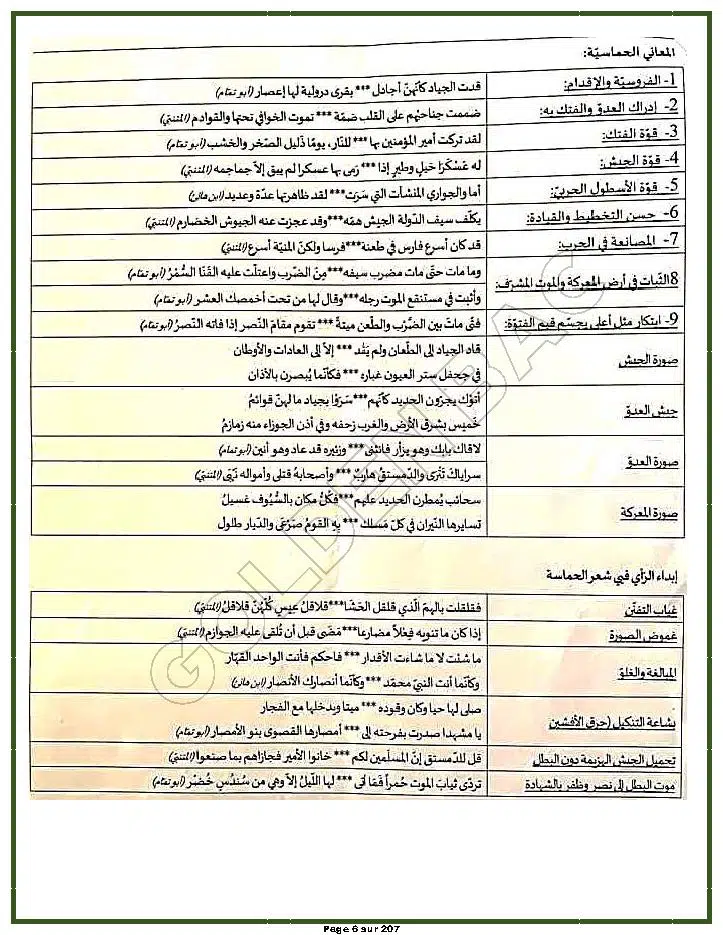 المعاني الحماسيّة:
1- الفروسيّة والإقدام:
قدت الجياد كأنّهنّ أجادل *** بقرى درولية لها إعصار (أبو تمّام)
2- إدراك العدوّ والفتك به:
ضممت جناحيْهم على القلب ضمّة *** تموت الخوافي تحتها والقوادم (المتنبّي)
3- قوّة الفتك:
لقد تركت أمير المؤمنين بها *** للنّار، يومًا ذليل الصّخر والخشب (أبو تمّام)
4- قوّة الجيش:
له عَسْكَرَا خيلٍ وطيرٍ إذا *** رَمى بها عسكرا لم يبق إلاّ جماجمه (المتنبّي)
5- قوّة الأسطول الحربيّ:
أما والجواري المنشآت التي سَرَت*** لقد ظاهرتها عدّة وعديد (ابن هانئ)
6- حسن التخطيط والقيادة:
يكلّف سيف الدّولة الجيش همّه***وقد عجزت عنه الجيوش الخضارم (المتنبّي)
7- المصانعة في الحرب:
قد كان أسرع فارس في طعنه***فرسا ولكنّ المنيّة أسرع (المتنبّي)
8الثّبات في أرض المعركة والموت المشرّف:
وما مات حتّى مات مضرب سيفه***مِنَ الضّرب واعتلّت عليه القَنَا السُّمْرُ (أبو تمّام)
وأثبت في مستنقع الموت رجله***وقال لها من تحت أخمصك العشر (أبو تمّام)
9- ابتكار مثل أعلى يجسّم قيم الفتوّة:
فتًى ماتَ بين الضَّرْب والطّعن ميتةً *** تقوم مقامَ النّصر إذا فاته النّصرُ (أبو تمّام)
صورة الجيش
قاد الجياد إلى الطّعان ولم يَقُد *** إلاّ إلى العادات والأوطان
في جحفل ستر العيون غباره *** فكأنّما يُبصرن بالآذان
جيش العدوّ
أتوْك يجرّون الحديد كأنّهم***سَرَوْا بجياد ما لهنّ قوائمُ
خَميس بشرق الأرض والغرب زحفه وفي أذن الجوزاء منه زمازمُ
صورة العدوّ
لاقاك بابك وهو يزأر فانثنى***وزئيره قد عاد وهو أنين (أبو تمّام)
سراياكَ تَتْرَى والدّمستقُ هاربٌ *** وأصحابهُ قتلى وأمواله نُهْبَى (المتنبّي)
صورة المعركة
سحائب يُمطرن الحديد عليهم***فكُلُّ مكان بالسُّيُوف غسيلُ
تسايرها النّيران في كلّ مَسلك *** بِهِ القومُ صَرْعَى والدّيار طلول
إبداء الرّأي في شعر الحماسة
غياب التفنّن
فقلقلت بالهمّ الّذي قلقل الحَشَا***قلاقلُ عيسٍ كُلّهُنّ قلاقلُ (المتنبّي)
غموض الصورة
إذا كان ما تنويه فعْلاً مضارعا***مَضَى قبل أن تُلقى عليه الجوازم (المتنبّي)
المبالغة والغلوّ
ما شئت لا ما شاءت الأقدار *** فاحكم فأنت الواحد القهّار
وكأنّما أنت النّبيّ محمّد *** وكأنّما أنصارك الأنصار (ابن هانئ)
بشاعة التنكيل (حرق الأفشين
صلى لها حيا وكان وقوده *** ميتا ويدخلها مع الفجار
يا مشهدا صدرت بفرحته إلى *** أمصارها القصوى بنو الأمصار (أبو تمّام)
تحميل الجيش الهزيمة دون البطل
قل للدّمستق إنّ المسلّمين لكم *** خانوا الأمير فجازاهم بما صنعوا (المتنبّي)
موت البطل إلى نصر وظفر بالشهادة
تردّى ثيابَ الموت حُمراً فَمَا أتى *** لها اللّيلُ إلاّ وهي من سُندُسٍ خُضْر (أبو تمّام)
GOLDEN BAC
Page 6 sur 207